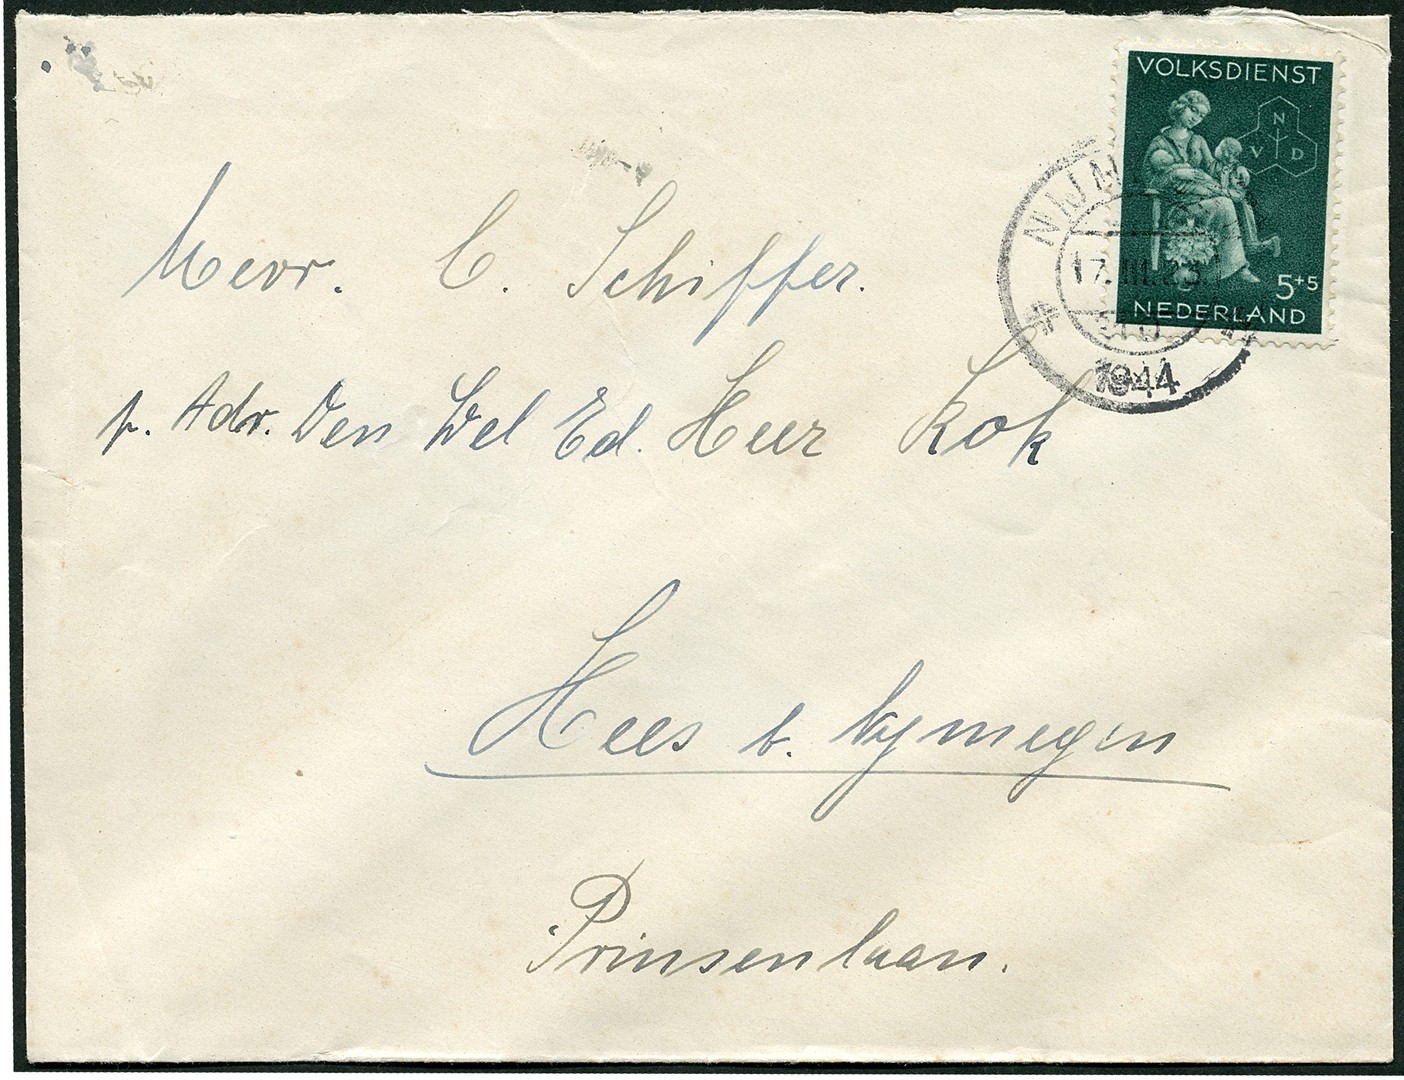 VOLKSDIENST
N
V D
5+5
NEDERLAND
17.III.23
1944
Mevr. C. Schiffer.
p. Adr. Den Wel Ed. Heer Kok
Hees b. Nymegen
Prinsenlaan.